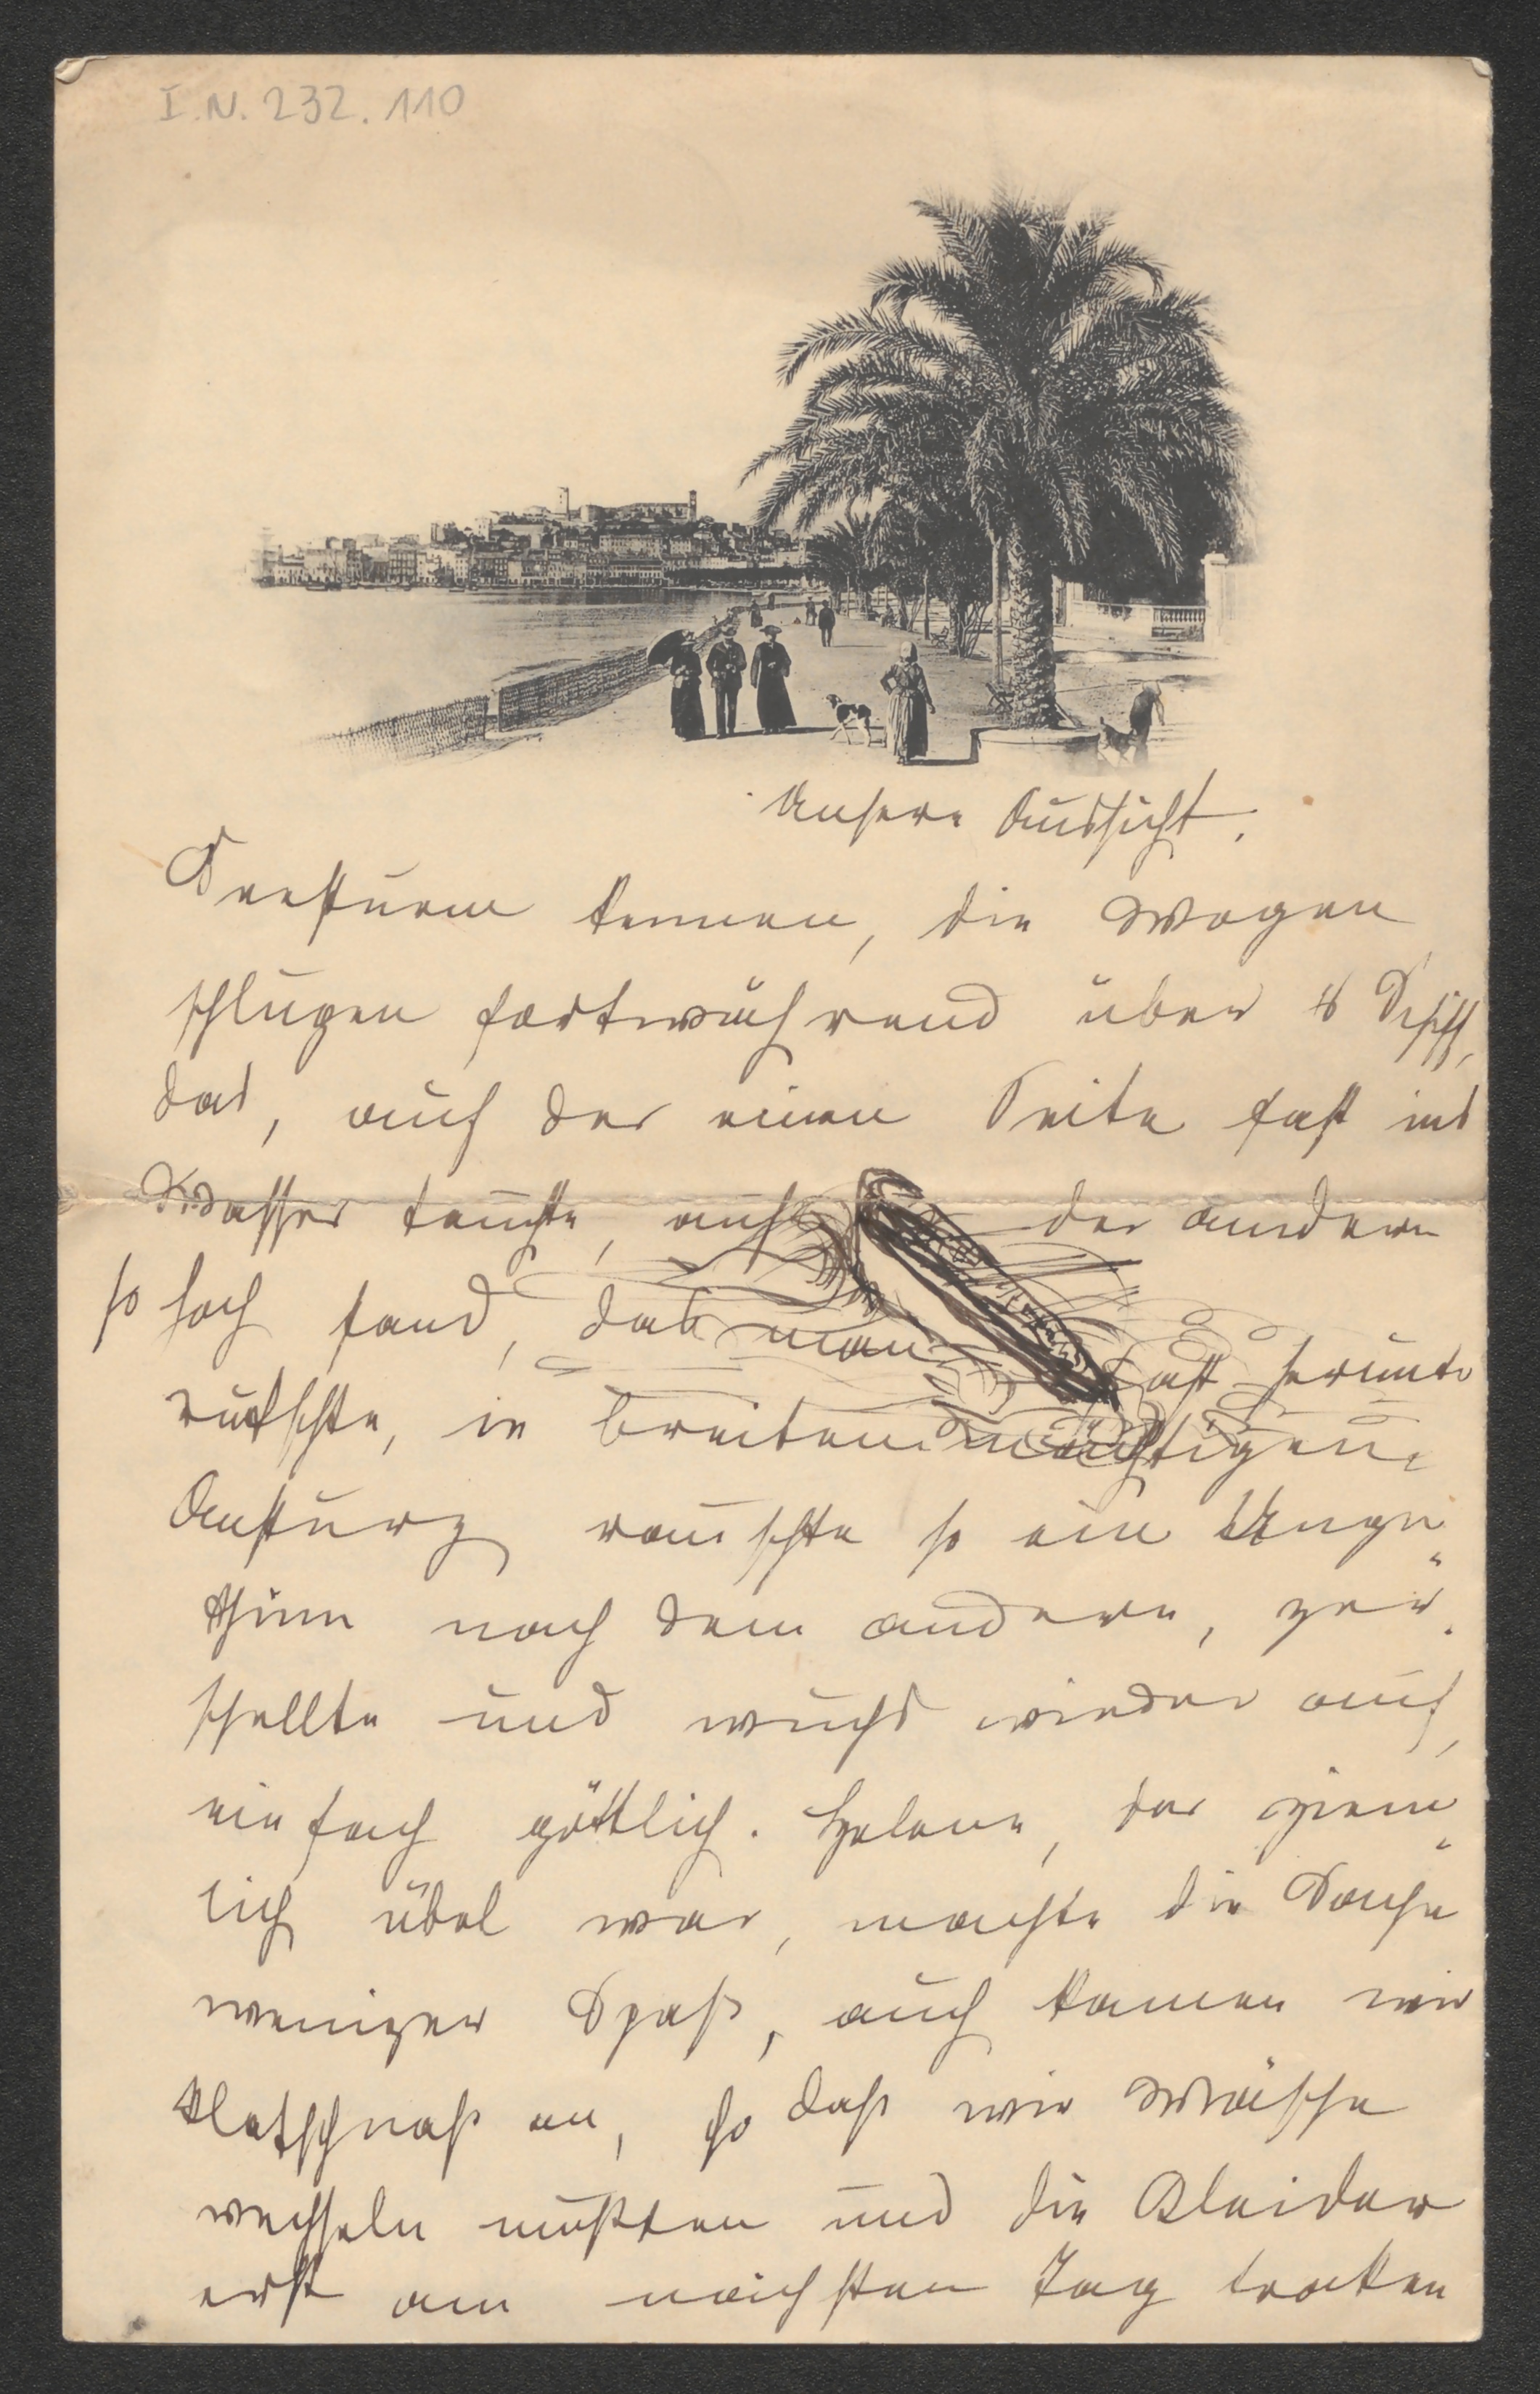 I.N. 232.110
Unsere Aussicht.
Seesturm kennen, die Wogen
schlugen fortwährend über's Schiff,
das, auf der einen Seite fast ins
Wasser tauchte, auf der andern
so hoch stand, daß man fast herunter
rutschte, in breitem mächtigem
Ansturz rauschte so ein Unge
thüm nach dem andern, zer
schellte und wuchs wieder auf,
einfach göttlich. Helene, der ziem
lich übel war, machte die Sache
weniger Spaß, auch kamen wir
klatschnaß an, so daß wir Wäsche
wechseln mußten und die Kleider
erst am nächsten Tag trocken